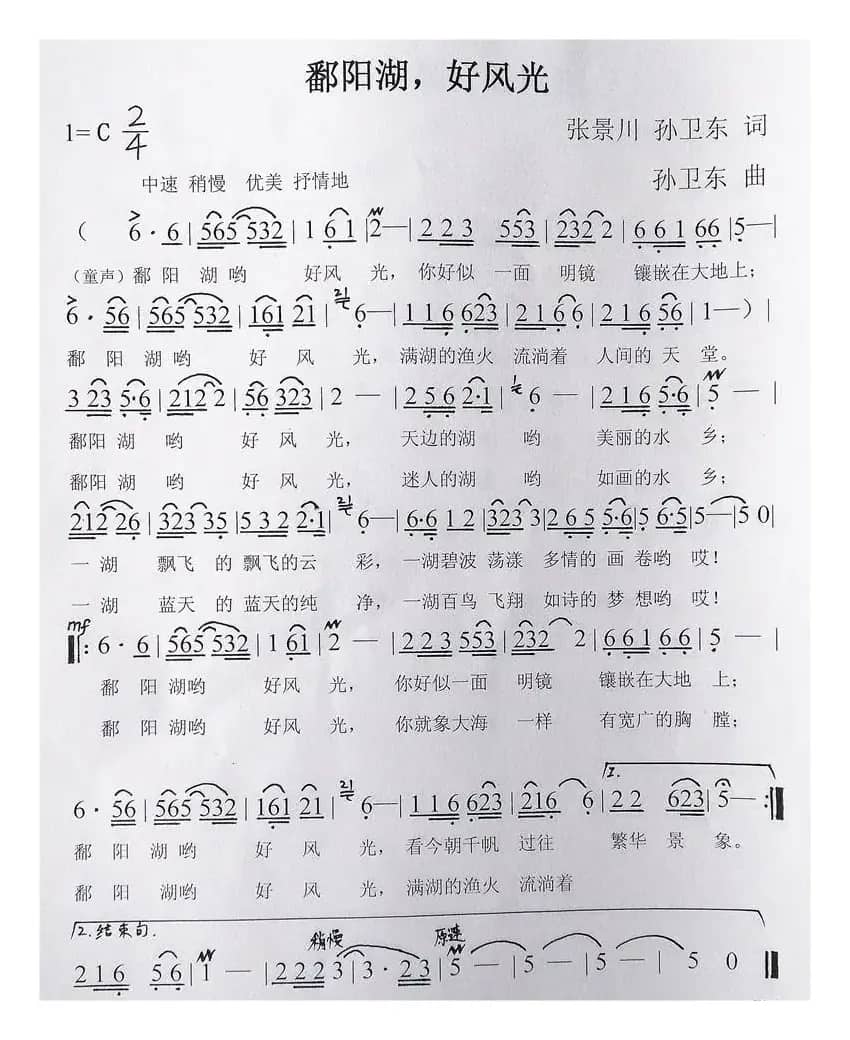 鄱阳湖，好风光
1=C 2/4
张景川 孙卫东 词
中速 稍慢 优美 抒情地
孙卫东 曲
（ 6·6|565 532|1 61|2—|2 2 3 553|232 2|6 6 1 66|5—|
（童声）鄱 阳 湖 哟 好风 光，你好似 一面 明镜 镶嵌在大地上；
6·56|565 532|161 21|6—|1 1 6 623|2 1 6 6|2 1 6 56|1—）|
鄱 阳 湖 哟 好 风 光，满湖的渔火 流淌着 人间的 天 堂。
3 23 5·6|212 2|56 323|2 —|2 5 6 2·1|6 —|2 1 6 5·6|5 —|
鄱阳 湖 哟 好 风 光， 天边的湖 哟 美丽的水 乡；
鄱阳 湖 哟 好 风 光， 迷人的湖 哟 如画的水 乡；
212 26|323 35|5 3 2 2·1|6—|6·6 1 2|323 3|2 6 5 5·6|5 6·5|5—|5 0|
一 湖 飘飞 的 飘飞的云 彩，一湖碧波 荡漾 多情的 画 卷哟 哎！
一 湖 蓝天 的 蓝天的纯 净，一湖百鸟 飞翔 如诗的 梦 想哟 哎！
mf
‖: 6·6|565 532|1 61|2 —|2 2 3 553|232 2|6 6 1 6 6|5 —|
鄱 阳 湖哟 好风 光， 你好似一面 明镜 镶嵌在大地 上；
鄱 阳 湖哟 好风 光， 你就象大海 一样 有宽广的胸 膛；
1.
6·56|565 532|161 21|6—|1 1 6 623|216 6|2 2 623|5—:‖
鄱 阳 湖 哟 好 风 光，看今朝千帆 过往 繁华 景 象。
鄱 阳 湖哟 好 风 光，满湖的渔火 流淌着
2.结束句. 稍慢 原速
2 1 6 5 6|1 —|2 2 2 3|3·2 3|5 —|5 —|5 —|5 0‖